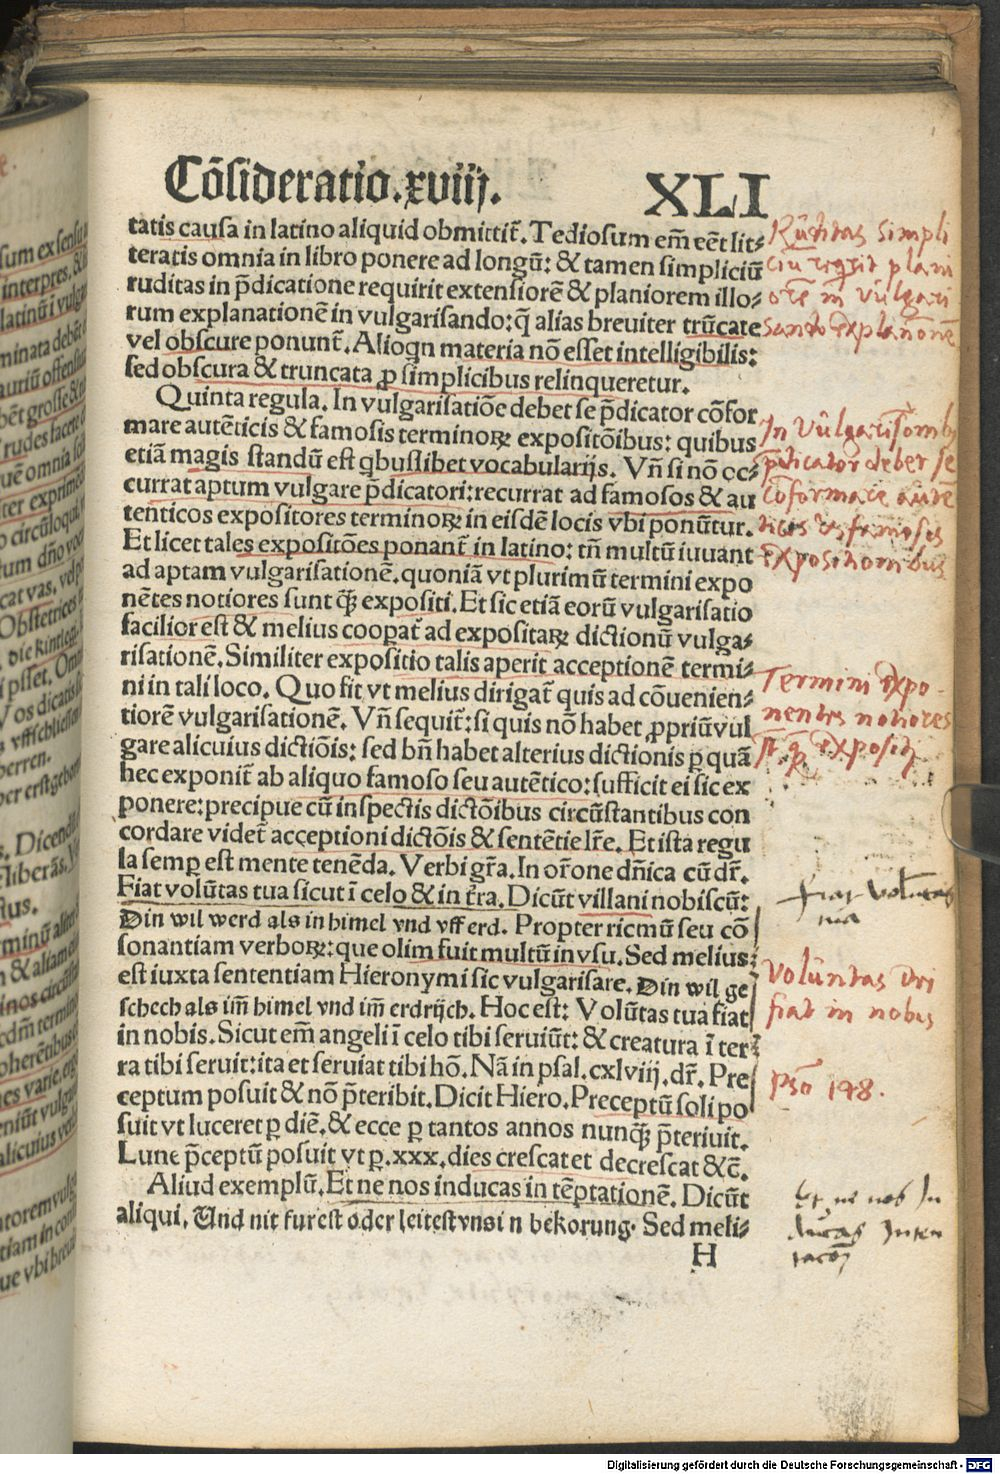 Cõsideratio.xviij. XLI
tatis causa in latino aliquid obmittit̃. Tediosum em̃ eẽt lit⸗
teratis omnia in libro ponere ad longũ: & tamen simpliciũ
ruditas in p̃dicatione requirit extensiorẽ & planiorem illo⸗
rum explanationẽ in vulgarisando: q̃ alias breuiter trũcate
vel obscure ponunt̃. Alioqn materia nõ esset intelligibilis:
sed obscura & truncata ꝓ simplicibus relinqueretur.
Quinta regula. In vulgarisatiõe debet se p̃dicator cõfor
mare autẽticis & famosis terminoꝝ expositõibus: quibus
etiã magis standũ est qbuslibet vocabularijs. Vñ si nõ oc⸗
currat aptum vulgare p̃dicatori: recurrat ad famosos & au
tenticos expositores terminoꝝ in eisdẽ locis vbi ponũtur.
Et licet tales expositões ponant̃ in latino: tñ multũ iuuant
ad aptam vulgarisationẽ. quoniã vt plurimũ termini expo
nẽtes notiores sunt q̃ȝ expositi. Et sic etiã eorũ vulgarisatio
facilior est & melius cooꝑat̃ ad expositaꝝ dictionũ vulga⸗
risationẽ. Similiter expositio talis aperit acceptionẽ termi⸗
ni in tali loco. Quo fit vt melius dirigat̃ quis ad cõuenien⸗
tiorẽ vulgarisationẽ. Vñ sequit̃: si quis nõ habet ꝓpriũ vul
gare alicuius dictiõis: sed bñ habet alterius dictionis ꝑ quã
hec exponit̃ ab aliquo famoso seu autẽtico: sufficit ei sic ex
ponere: precipue cũ inspectis dictõibus circũstantibus con
cordare videt̃ acceptioni dictõis & sentẽtie lr̃e. Et ista regu
la semꝑ est mente tenẽda. Verbi gr̃a. In or̃one dñica cũ dr̃.
Fiat volũtas tua sicut ĩ celo & in tr̃a. Dicũt villani nobiscũ:
Din wil werd als in himel vnd vff erd. Propter ricmũ seu cõ
sonantiam verboꝝ: que olim fuit multũ in vsu. Sed melius
est iuxta sententiam Hieronymi sic vulgarisare. Din wil ge
schech als im̃ himel vnd im̃ erdrijch. Hoc est: Volũtas tua fiat
in nobis. Sicut em̃ angeli ĩ celo tibi seruiũt: & creatura ĩ ter⸗
ra tibi seruit: ita et seruiat tibi hõ. Nã in psal. cxlviij. dr̃. Pre
ceptum posuit & nõ p̃teribit. Dicit Hiero. Preceptũ soli po
suit vt luceret ꝑ diẽ. & ecce ꝑ tantos annos nunq̃ȝ p̃teriuit.
Lune p̃ceptũ posuit vt ꝑ. xxx. dies crescat et decrescat &c̃.
Aliud exemplũ. Et ne nos inducas in tẽptationẽ. Dicũt
aliqui. Und nit furest oder leitest vns i n bekorung. Sed meli⸗
H
Rũditas simpli
ciũ reqrit plani
orẽ in vũlgari
sando explañonẽ
In vũlgarisonibꝰ
p̃dicator debet se
cõformare autẽ
ticis & famosis
expositionibus
Termini expo-
nentes notiores
st q̃ expositi
fiat volũtas
tua
Volũntas dei
fiat in nobis
Pso 148.
Et ne nos In
dũcas Inten
tacõȝ
Digitalisierung gefördert durch die Deutsche Forschungsgemeinschaft - DFG